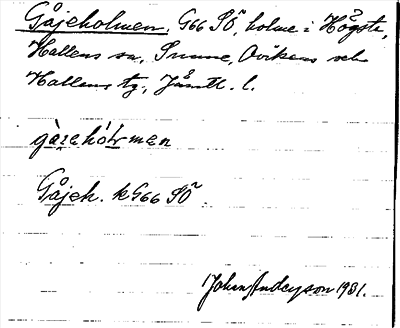 Gåjeholmen, G66 SÖ, holme i Högsta,
Hallens sn, Sunne, Ovikens och
Hallens tg, Jämtl. l.
gàɪehól̵men
Gåjeh. k G66 SÖ
Johan Anderson 1931.